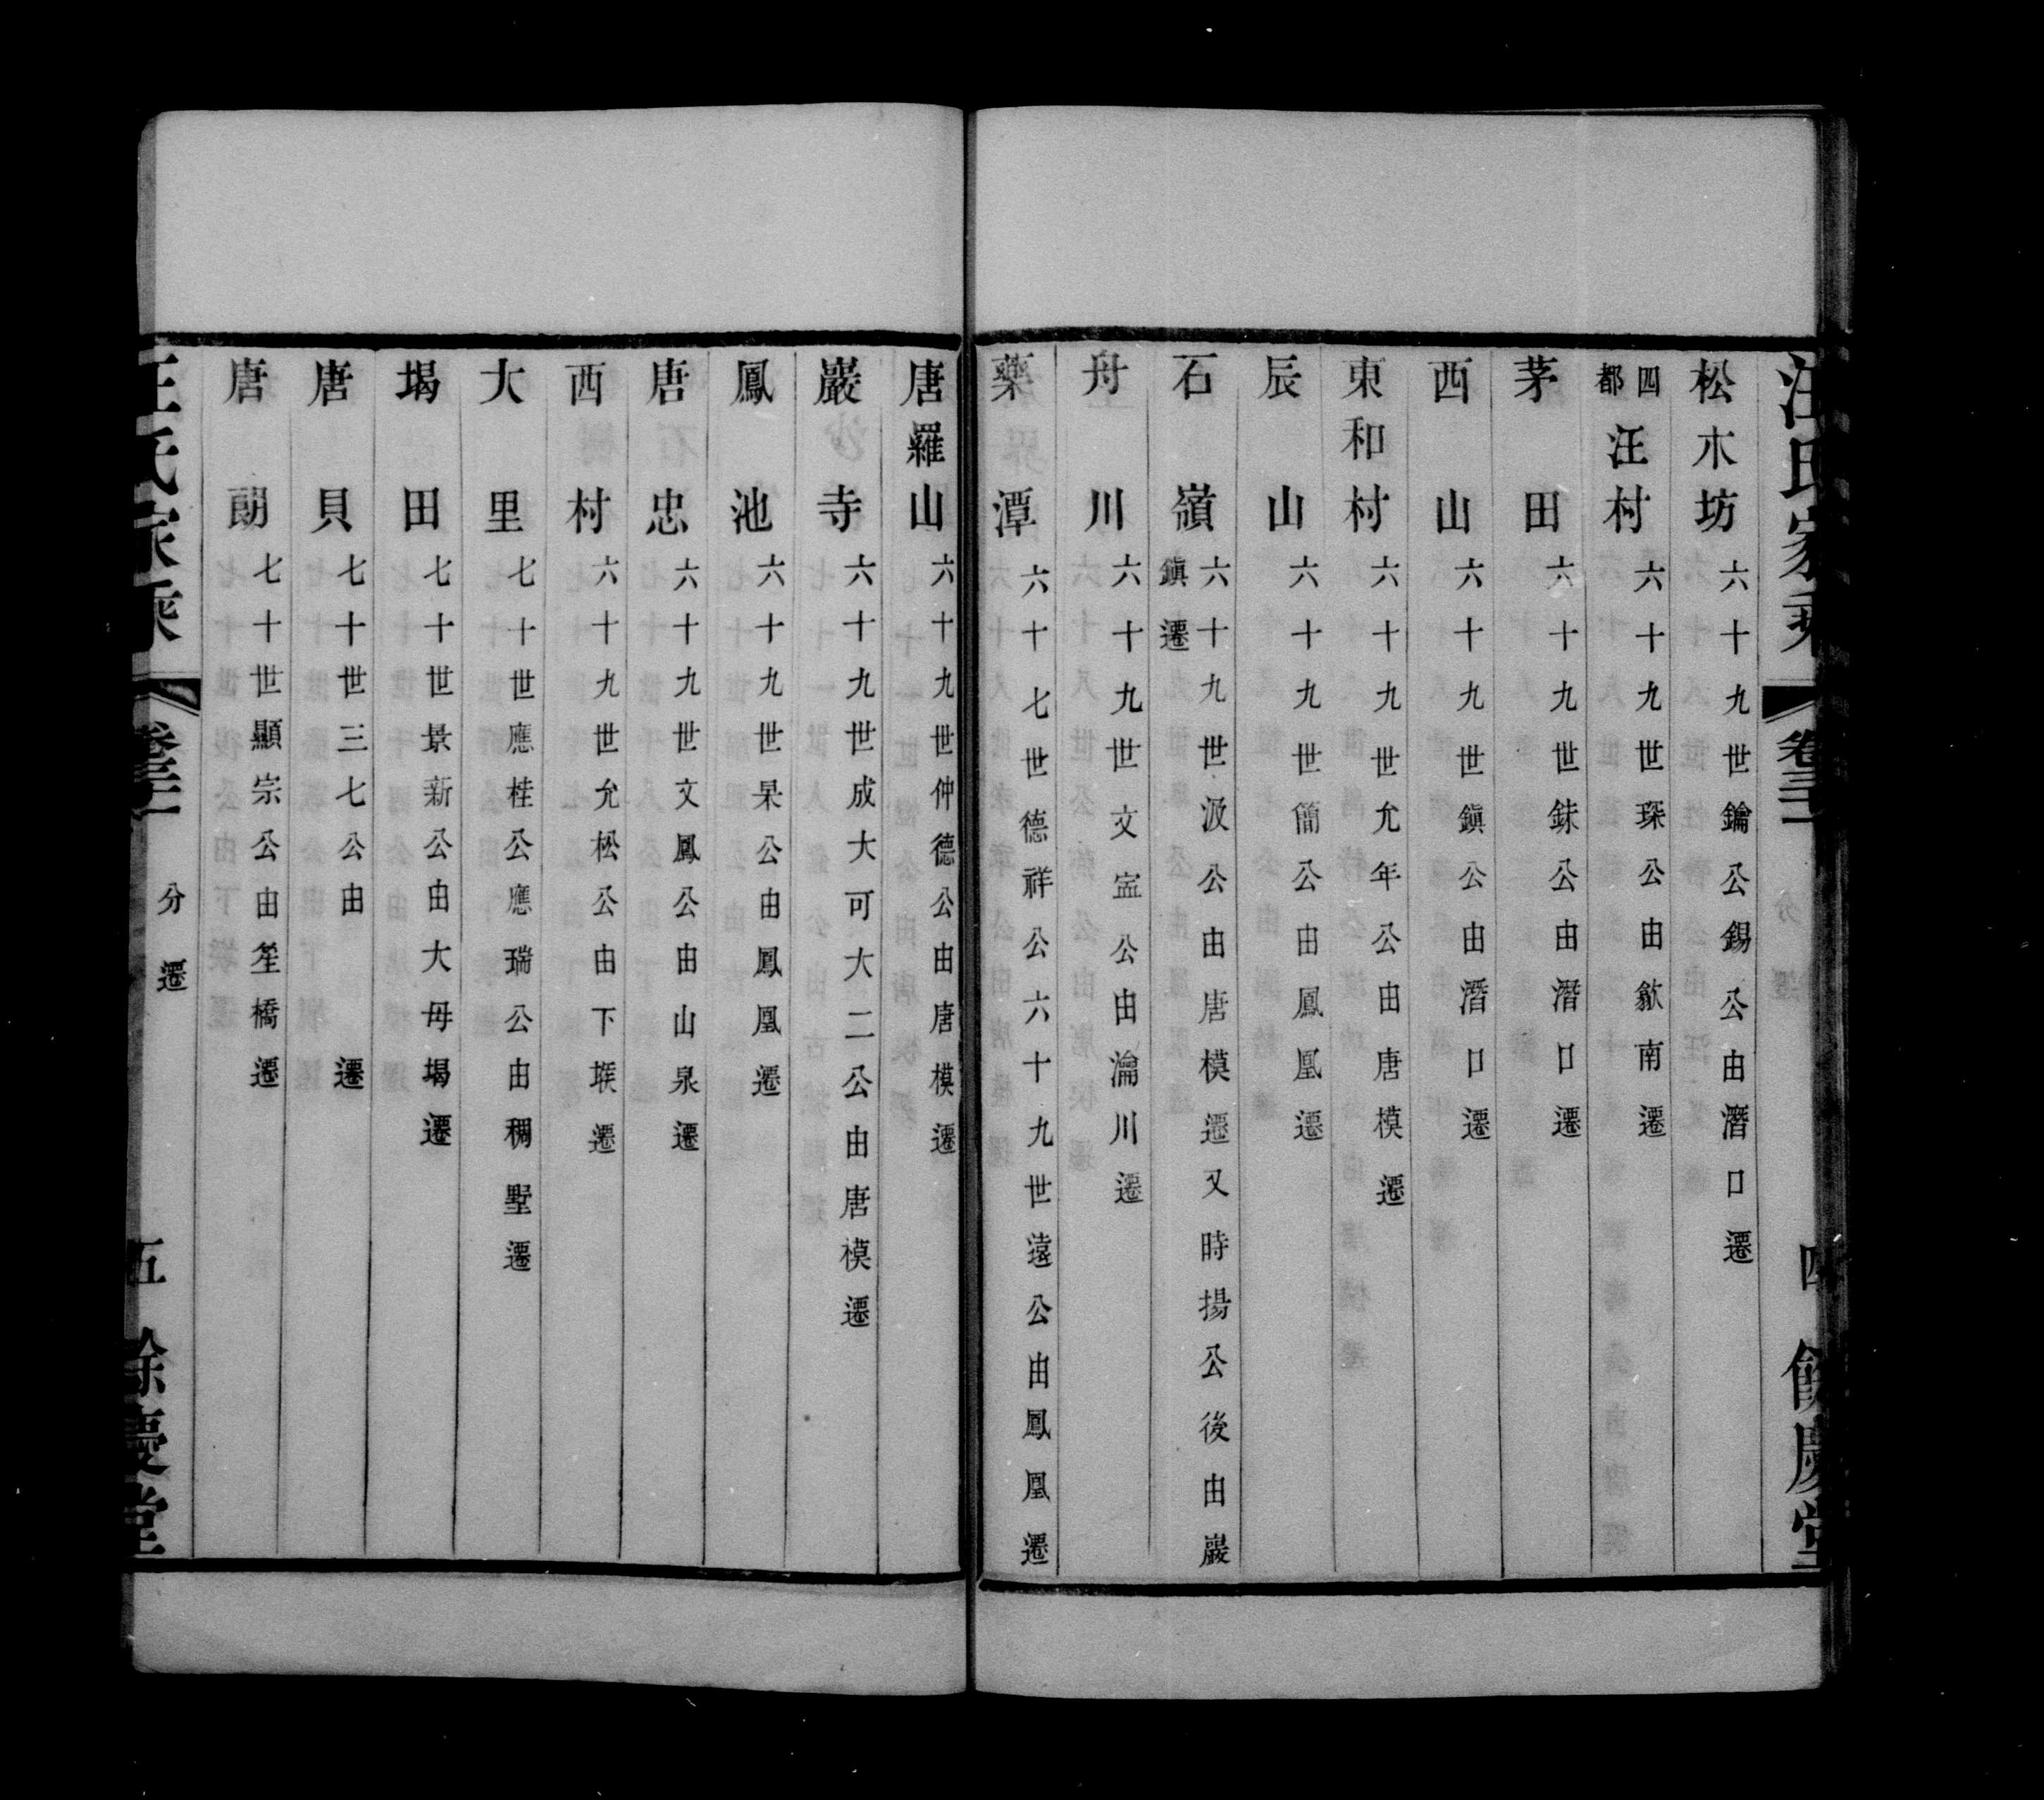 汪氏家乘 卷三 四 餘慶堂
松木坊 六十九世鑰公錫公由潛口遷
四都汪村 六十九世琛公由歙南遷
茅田 六十九世銇公由潛口遷
西山 六十九世鎮公由潛口遷
東和村 六十九世允年公由唐模遷
辰山 六十九世簡公由鳳凰遷
石嶺 六十九世汲公由唐模遷又時揚公後由巖
鎮遷
舟川 六十九世文寍公由瀹川遷
藥潭 六十七世德祥公六十九世遠公由鳳凰遷
唐羅山 六十九世仲德公由唐模遷
巖寺 六十九世成大可大二公由唐模遷
鳳池 六十九世杲公由鳳凰遷
唐忠 六十九世文鳳公由山泉遷
西村 六十九世允松公由下堠遷
大里 七十世應桂公應瑞公由稠墅遷
堨田 七十世景新公由大母堨遷
唐貝 七十世三七公由 遷
唐朗 七十世顯宗公由笙橋遷
汪氏家乘 卷三 分遷 五 餘慶堂